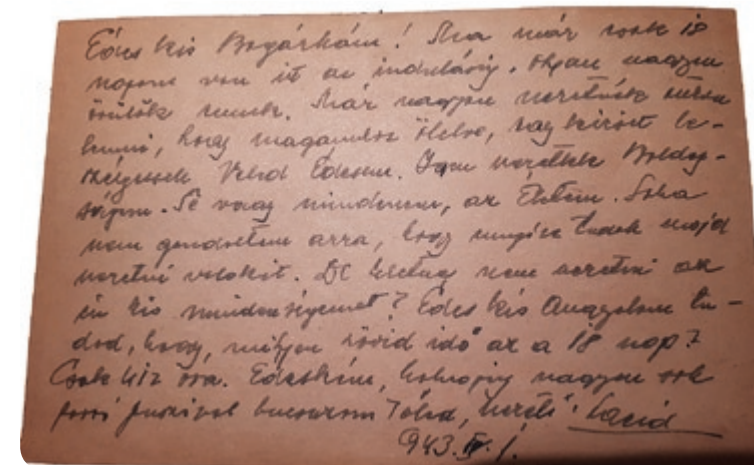 Édes kis Bogárkám! Ma már csak 18
napom van itt az indulásig. Olyan nagyon
örülök ennek. Már nagyon szeretnék
lenni, hogy magamhoz ölelve, egy kicsit be-
Veled Édesem. Igen szeretlek Boldog-
ságom. Te vagy mindenem, az Életem. Soha
nem gondoltam arra, hogy ennyire tudok majd
szeretni valakit. De lehet nem szeretni az
én kis mindenségemet? Édes kis Angyalom tu-
dod, hogy, milyen rövid idő az a 18 nap?
Csak óra. Édeském, holnapig nagyon sok
forró puszival búcsúzom Tőled, szerető Lacid
943. IV. 1.